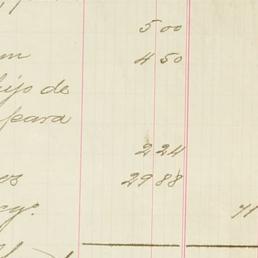 5 00
m 4 50
hijo de
para
2 24
es 29 88
71